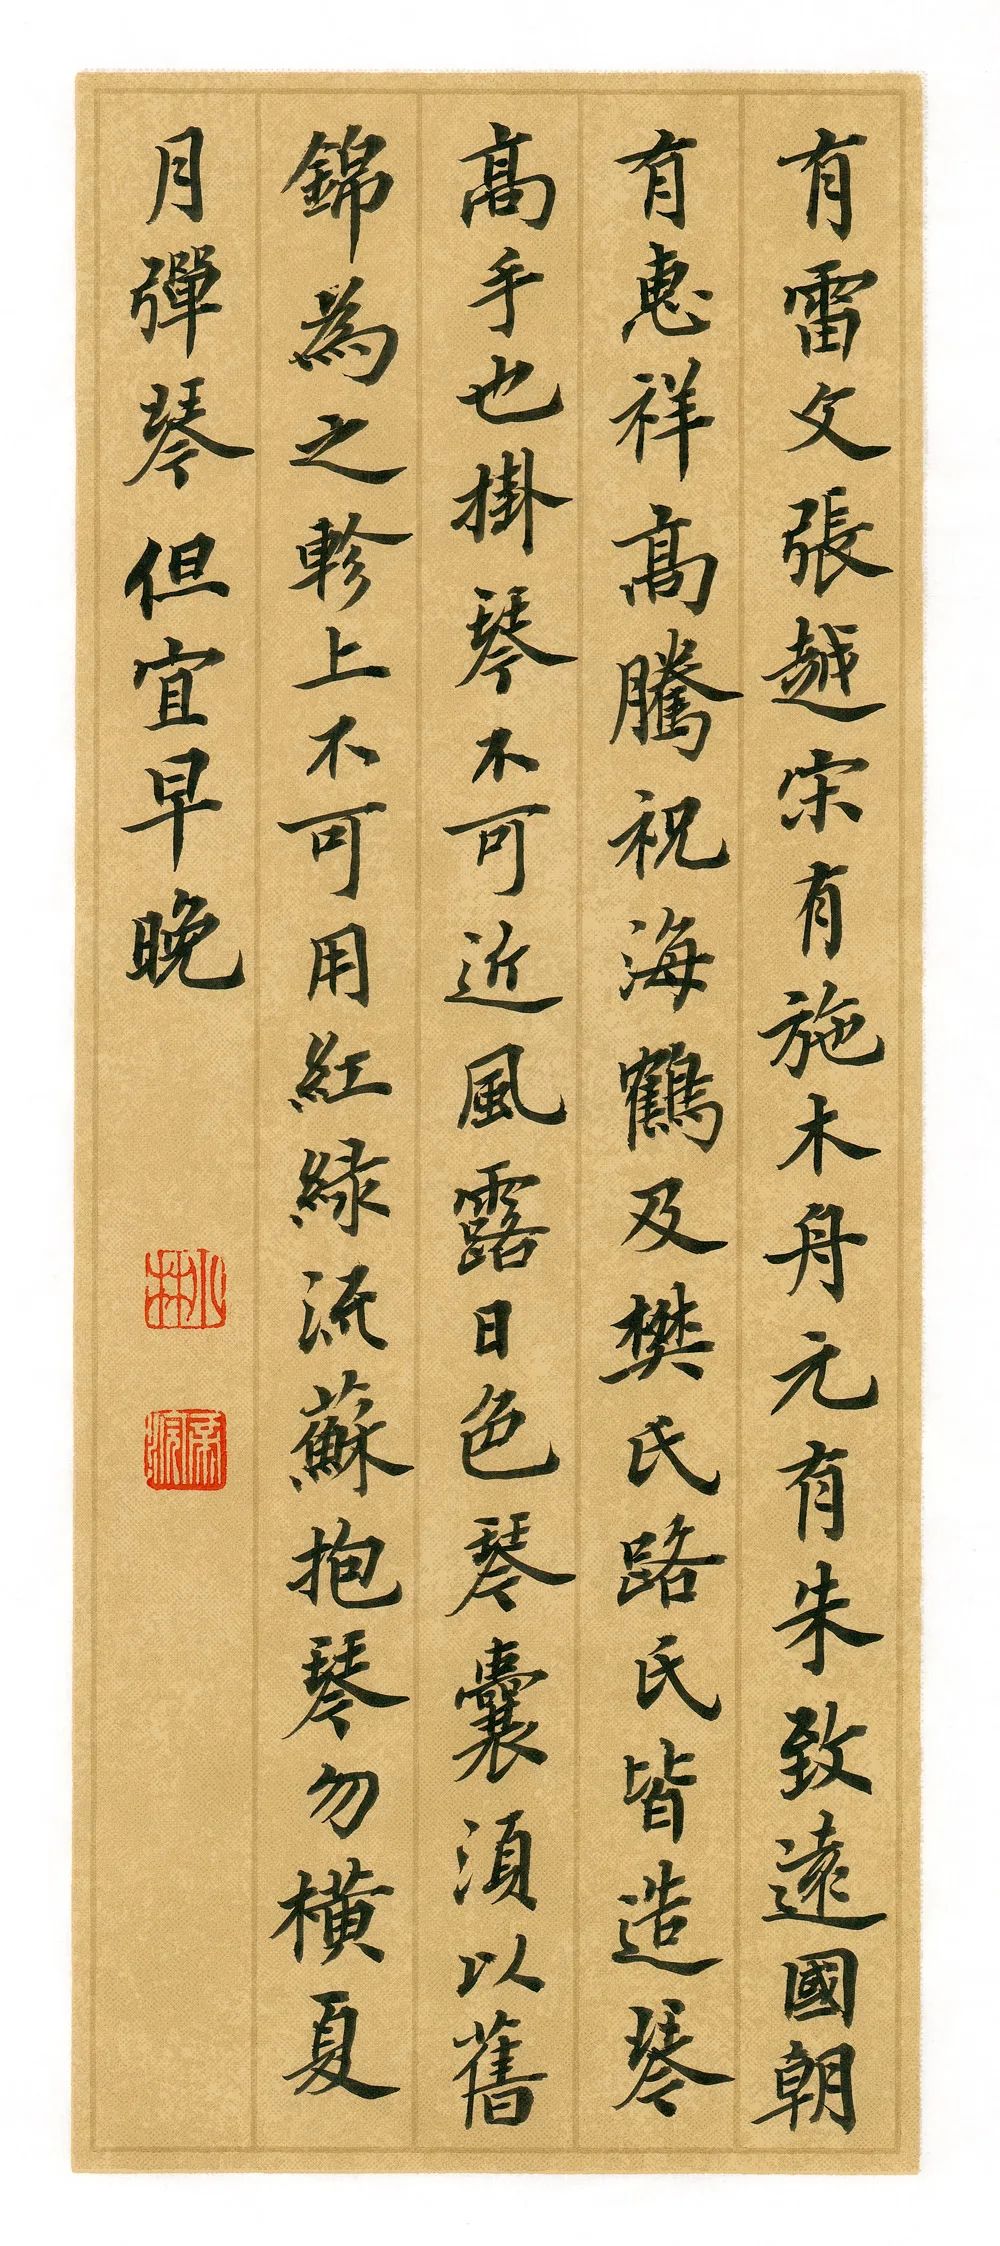 有雷文張越宋有施木舟元有朱致遠國朝
有惠祥高騰祝海鶴及樊氏路氏皆造琴
高手也掛琴不可近風露日色琴囊須以舊
錦為之軫上不可用紅綠流蘇抱琴勿橫夏
月彈琴但宜早晚